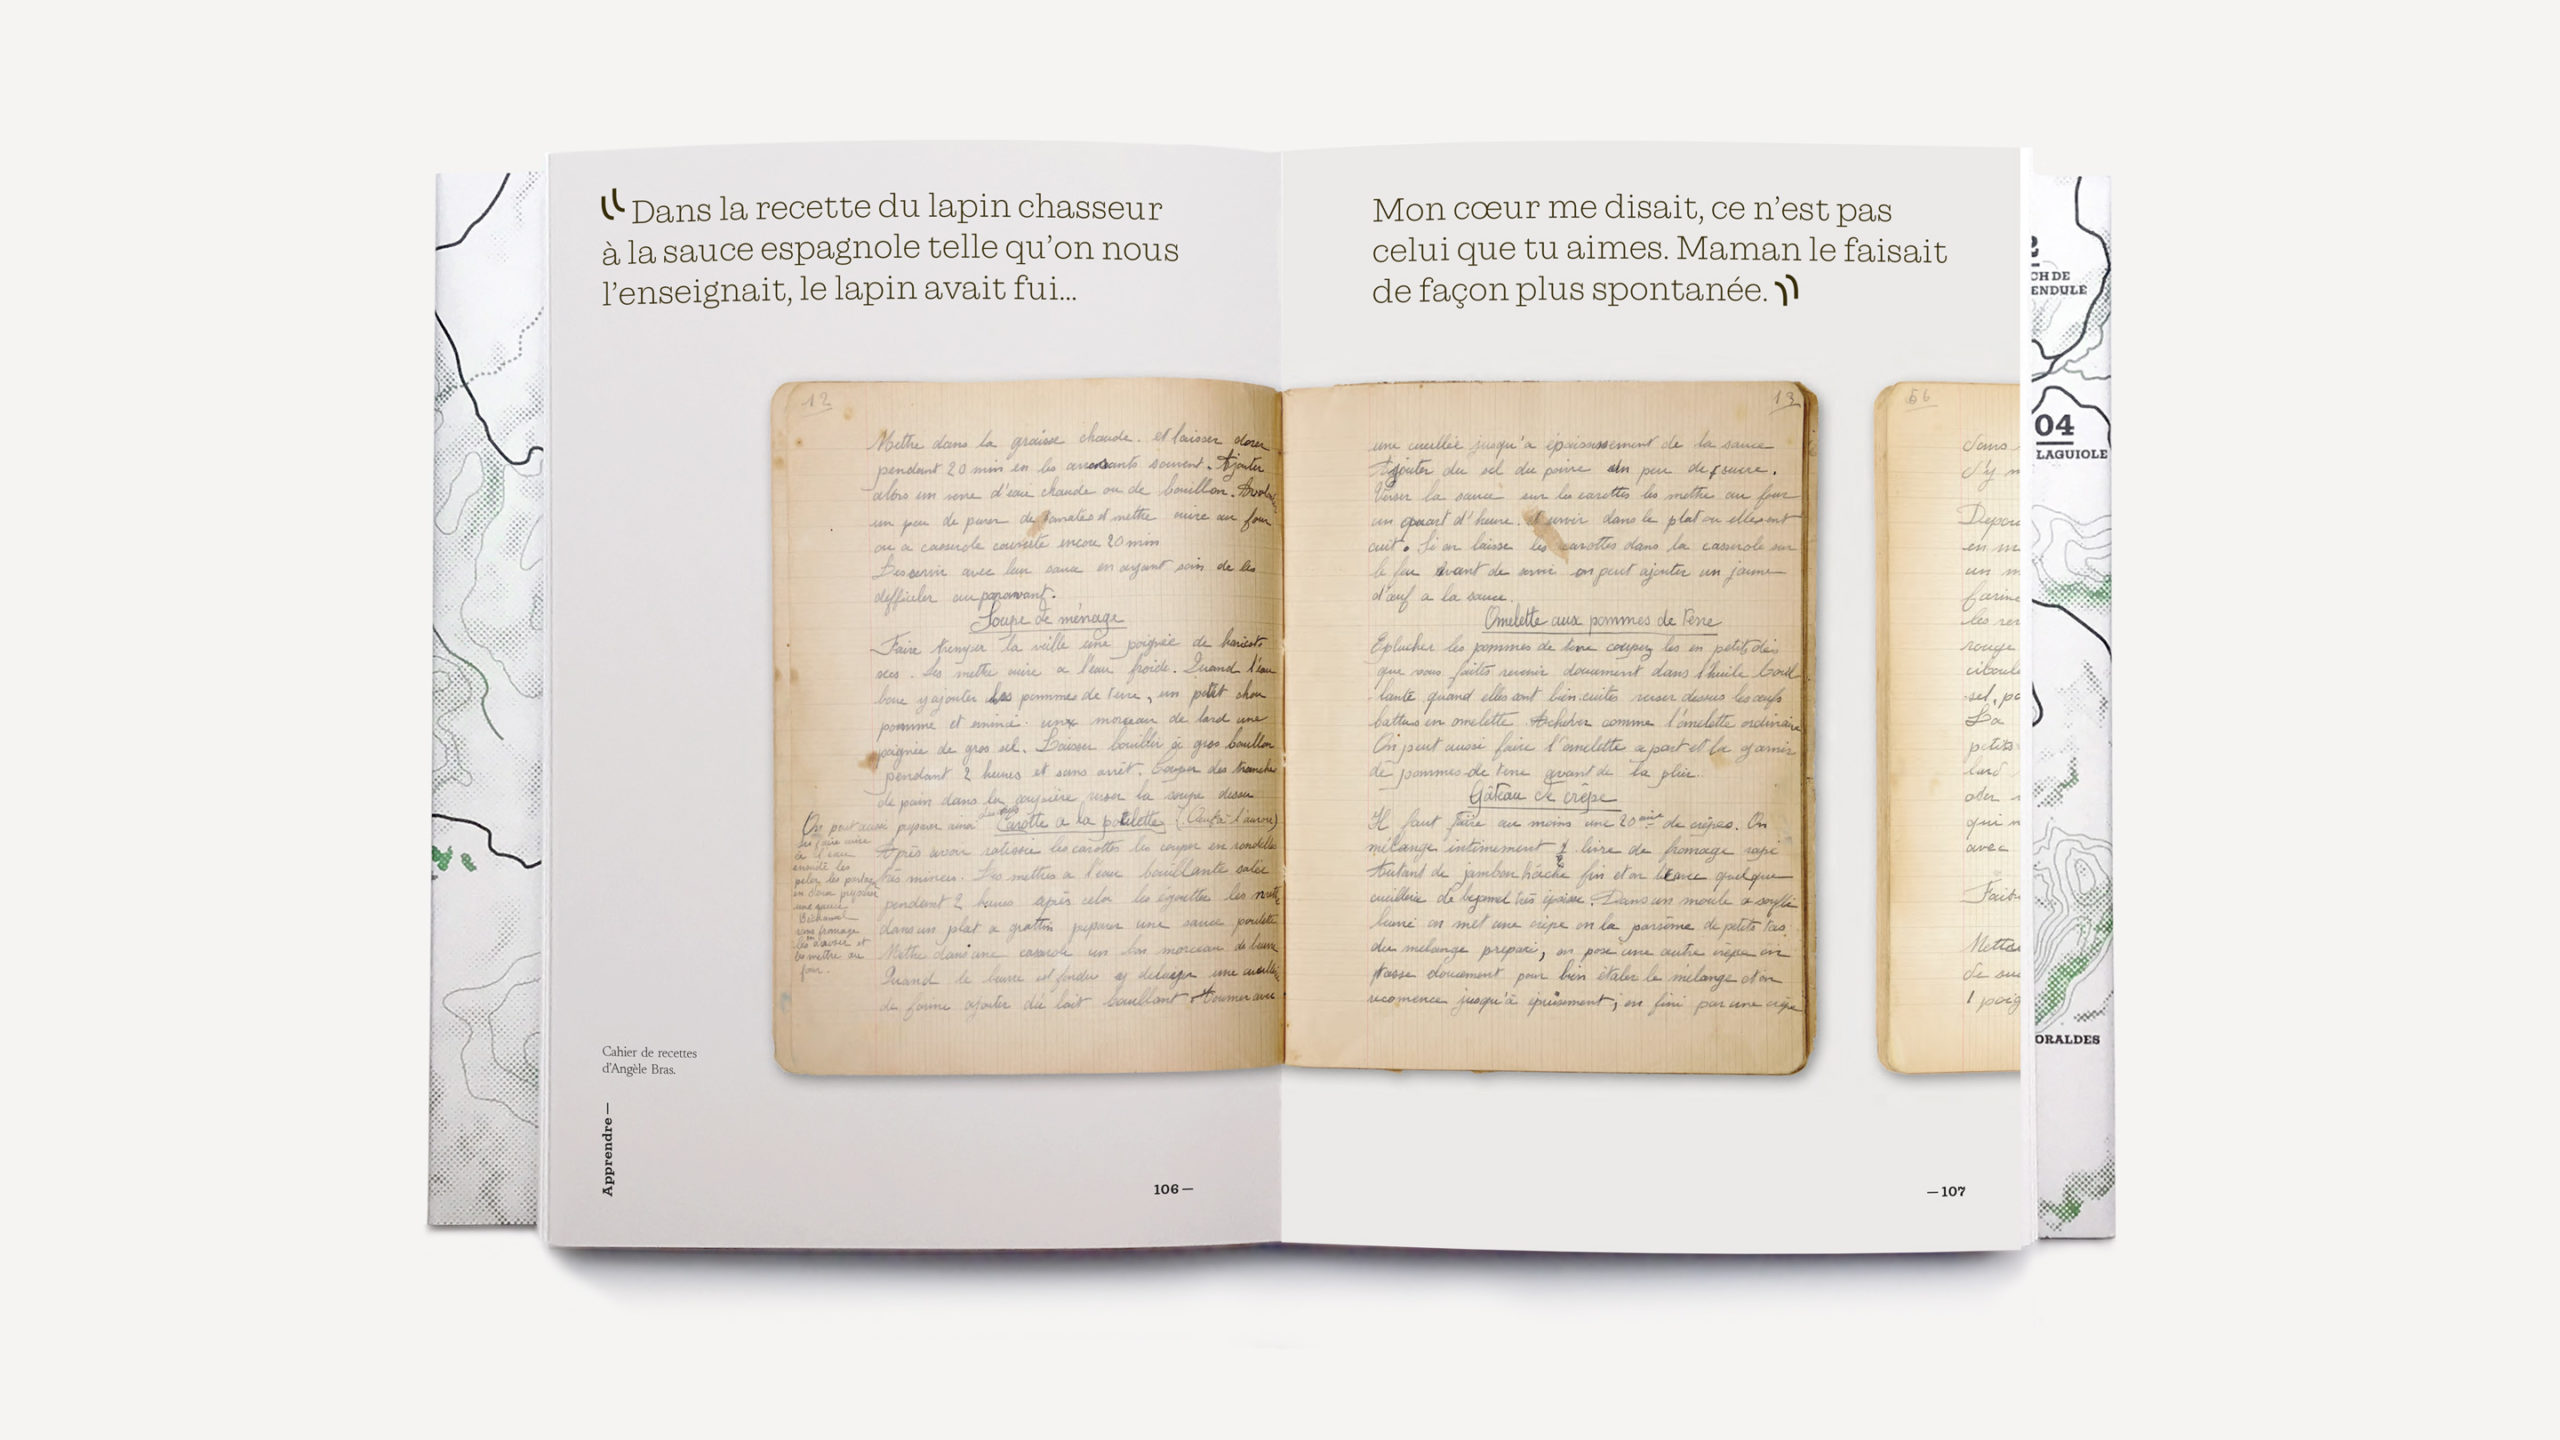 Dans la recette du lapin chasseur
à la sauce espagnole telle qu’on nous
l’enseignait, le lapin avait fui...
Mon cœur me disait, ce n’est pas
celui que tu aimes. Maman le faisait
de façon plus spontanée.
12
Mettre dans la graisse chaude. et laisser dorer
pendant 20 min en les arrosants souvent. Ajouter
alors un verre d'eau chaude ou de bouillon.
un peu de puree de tomates et mettre cuire au four
ou a casserole couverte encore 20 min
Les servir avec leur sauce en ayant soin de les
defficeler au paravant.
Soupe de ménage
Faire tremper la veille une poignée de haricots
secs. Les mettre cuire a l'eau froide. Quand l'eau
bout y ajouter les pommes de terre, un petit chou
pomme et emincé. un morceau de lard une
poignée de gros sel. Laisser bouillir à gros bouillon
pendant 2 heures et sans arrêt. Couper des tranches
de pain dans la soupière verser la soupe dessus
Carotte a la poulette
On peut aussi preparer ainsi
les faire cuire
à l'eau
ensuite les
peler les
en deux
une sauce
Béchamel
sans fromage
les et
les mettre au
four.
Après avoir ratisser les carottes les couper en rondelles
très minces. Les mettres a l'eau bouillante salée
pendant 2 heures après cela les égouttes les mettre
dans un plat a grattin preparer une sauce poulette
Mettre dans une casserole un bon morceau de beurre
Quand le beurre est fondu y delayer une cueillée
de farine ajouter du lait bouillant. tourner avec
13
une cueillée jusqu'a épaississement de la sauce
Ajouter du sel du poivre un peu de sucre.
Verser la sauce sur les carottes les mettre au four
un quart d'heure. et servir dans le plat ou elles ont
cuit. Si on laisse les carottes dans la casserole sur
le feu avant de servir on peut ajouter un jaune
d'œuf a la sauce.
Omelette aux pommes de terre
Eplucher les pommes de terre coupez les en petits dés
que vous faites revenir doucement dans l'huile bouil
lante quand elles sont bien cuites verser dessus les œufs
battus en omelette. Achever comme l'omelette ordinaire
On peut aussi faire l'omelette a part et la garnir
de pommes de terre avant de la plier.
Gâteau de crêpe
Il faut faire au moins une 20aine de crêpes. On
mélange intimement livre de fromage rapé
Autant de jambon hâché fin et on quelque
cueillerie de très épaisse. Dans un moule a soufflé
beurré on met une crêpe on la parsème de petits tas
du mélange preparé, on pose une autre crêpe on
tasse doucement pour bien étaler le mélange et on
recomence jusqu'à épuisement, on fini par une crêpe
56
Cahier de recettes
d’Angèle Bras.
Apprendre —
106 —
— 107
CH DE
ENDULE
04
LAGUIOLE
ORALDES